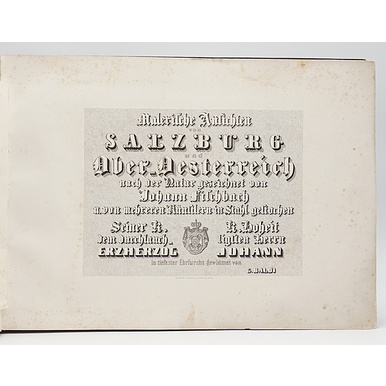 Malerische Ansichten
von
SALZBURG
und
Ober-Oesterreich
nach der Natur gezeichnet von
Johann Fischbach
u. von mehreren Künstlern in Stahl gestochen
Seiner K. K. Hoheit
dem durchlauch- tigsten Herrn
ERZHERZOG JOHANN
in tiefster Ehrfurcht gewidmet von
G. BALDI